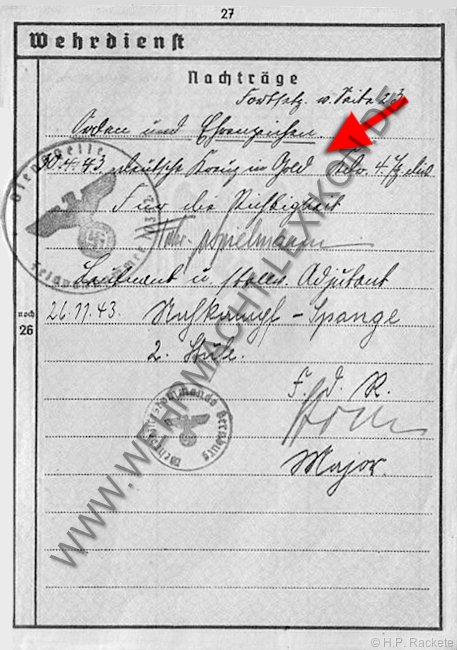 27
Wehrdienst
Nachträge
Fortsetz. v. Seite 23
Orden und Ehrenzeichen.
4.43 deutsche Kreuz in Gold
Für die Richtigkeit
Leutnant u. Adjutant
noch
26
26.11.43. Nahkampf-Spange
2. Stufe.
F. d. R.
Major.
WWW.WEHRMACHTLEXIKON.DE
© H.P. Rackete